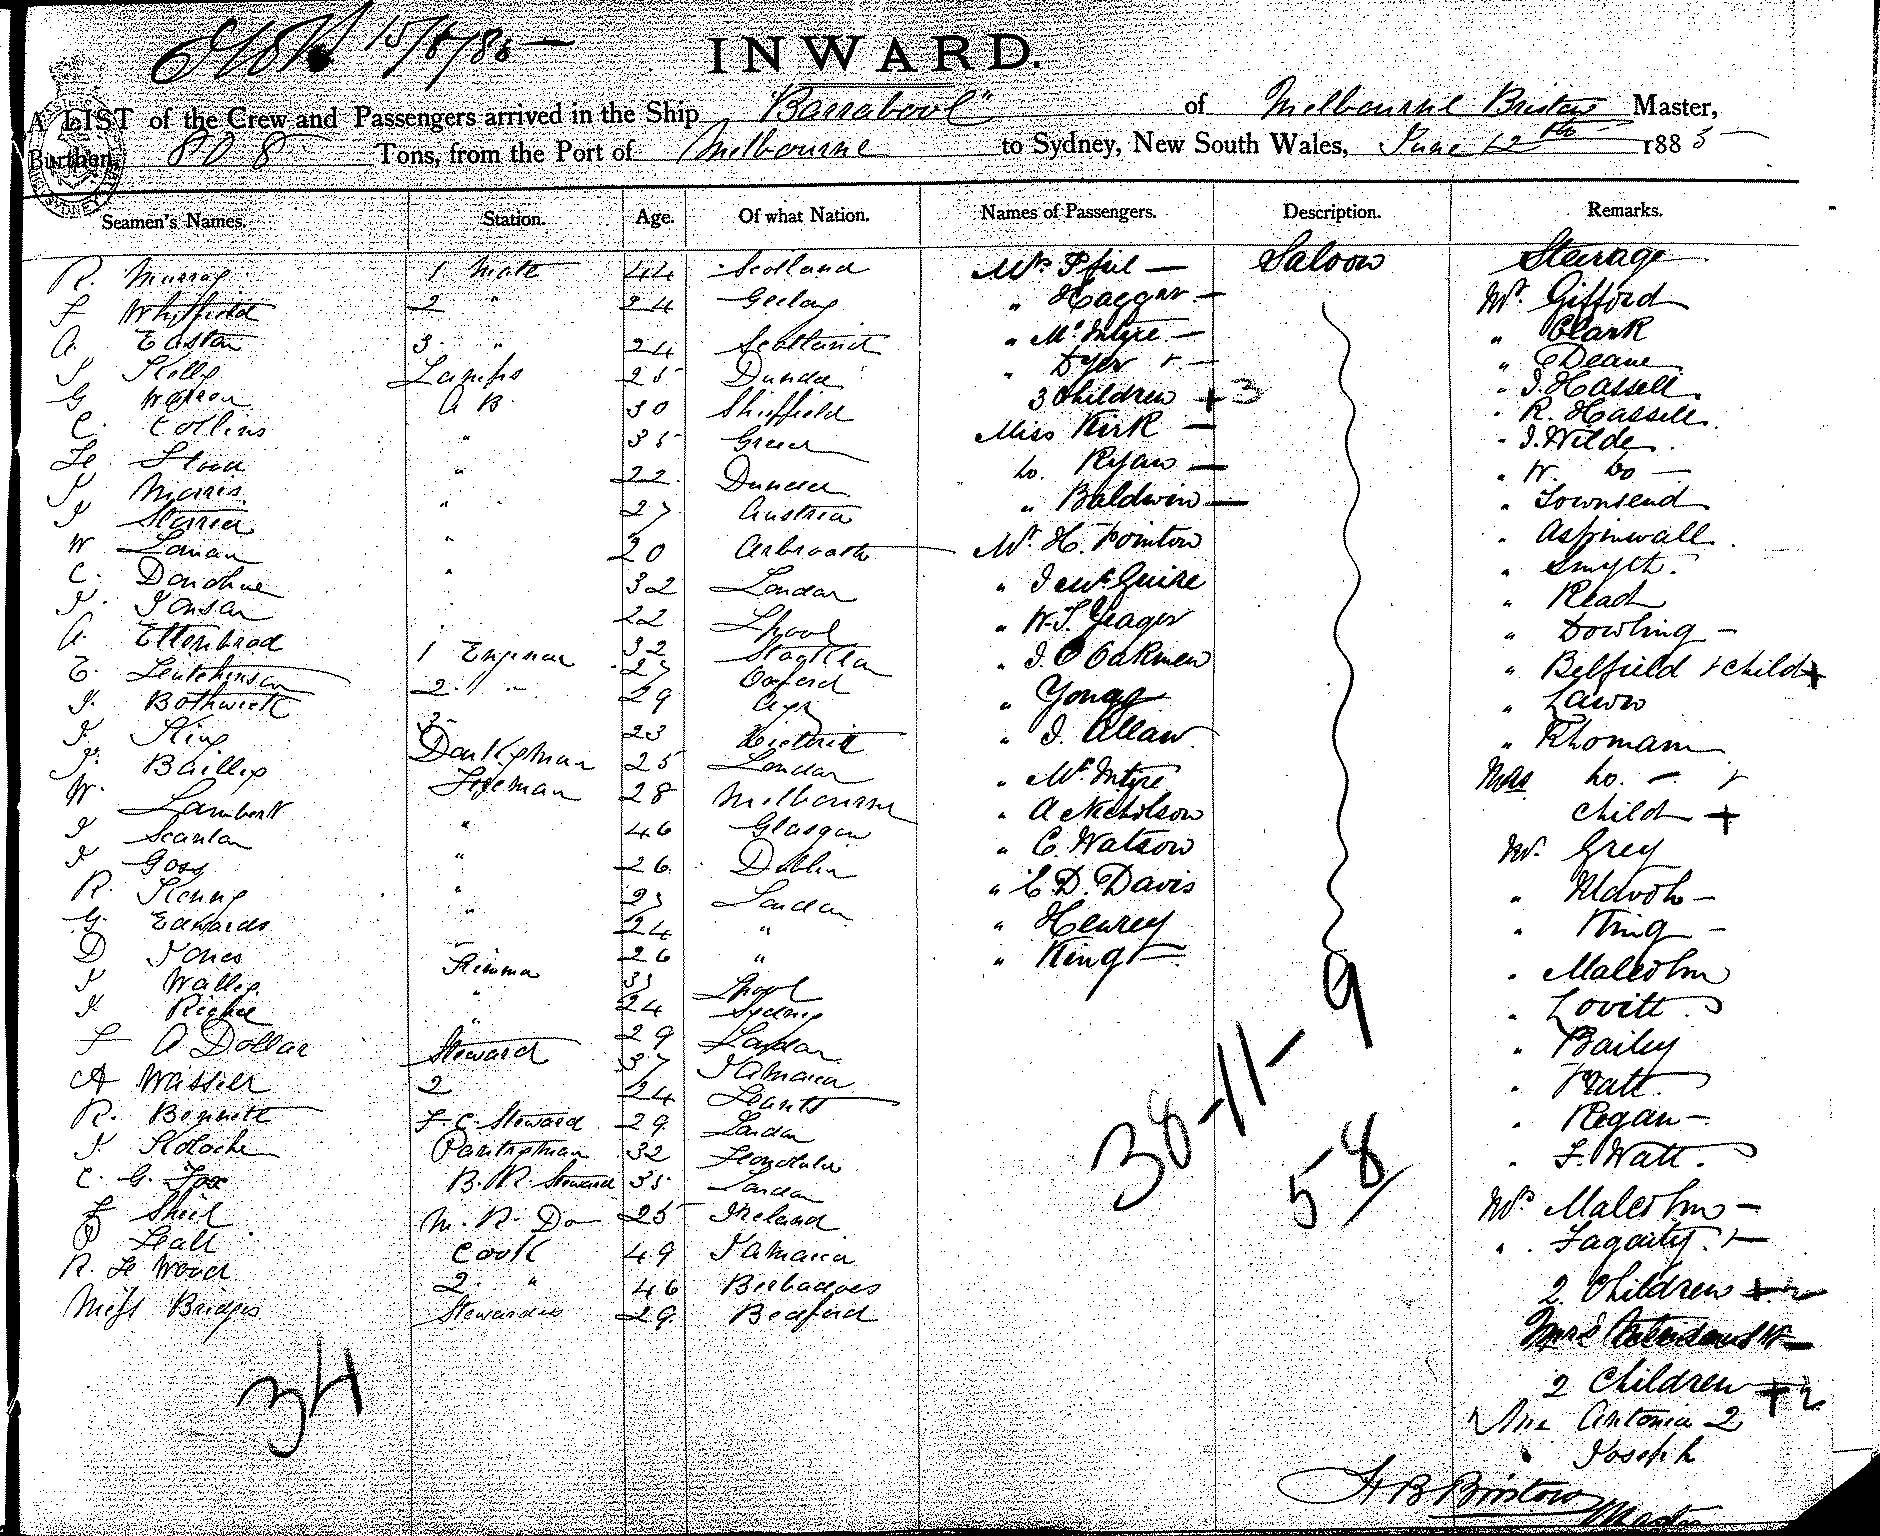 15/6/85
INWARD.
A LIST of the Crew and Passengers arrived in the Ship "Barrabool" of Melbourne Bristow Master,
Burthen, 808 Tons, from the Port of Melbourne to Sydney, New South Wales, June 12th 1885
Seamen's Names. Station. Age. Of what Nation. Names of Passengers. Description. Remarks.
R. Murray 1 Mate 44 Scotland Mrs Pfeil — Saloon Steerage
F Whitfield 2 " 24 Geelong " Haggar — Mr. Gifford
A. Easton 3. " 24 Scotland " McIntyre — " Clark
J Kelly Lamps 25 Dundee " Dyer + — " C Deane
G Watson A B 30 Sheffield 3 Children + 3 " J. Hassell
C. Collins " 35 Greece Miss Kirk — " R. Hassell
" 22 Dundee Do. Ryan — " J. Wilde
J Morris " 27 Austria " Baldwin — " W. Do —
J " 20 Arbroath Mr. H. Pointon " Townsend
W " 32 London " J McGuire " Aspinwall
C. Donohue 22 Lpool " W. J. Yeager " Smyth
J. Jonson 32 " J. C Oakmen " Read
A. 1 Engineer 27 Oxford " Young " Dowling —
E. Hutchinson 2 " 29 Ayr " J. Allan " Belfield + child +
J. Bothwick 3 23 Victoria " McIntyre " Lawn
J. King Donkeyman 25 London " A Nicholson " Rhomann
J. Baillie Fireman 28 Melbourne " C. Watson Mrs Do. — +
W. Lambert " 46 Glasgow " C. D. Davis child +
J Scanlan " 26 Dublin " Henrey Mr. Grey
J Goss " 23 London " King "
R. Kenny " 24 " " King —
G. Edwards 26 " " Malcolm
D Jones Trimmer Lpool " Lovitt
J Wallis " 24 Sydney " Bailey
J. " 29 London " Pratt
F A Dollar Steward 37 Jamaica " Regan —
A Wassell 2 24 " F. Watt.
R. Bennett F. C. Steward 29 London Mrs Malcolm —
J. Pantryman 32 Honolulu " Fagarty. + —
C. G. Fox B. R. Steward 35 London 2 Children + 2
F Sheil M. R. Do 25 Ireland
P Hall Cook 49 Jamaica 2 Children + 2
R. H Wood 2 " 46 Barbadoes Antonia 2
Miss Bridges Stewardess 29 Bedford Joseph
34
38-11-9
58
H B Bristow
Master